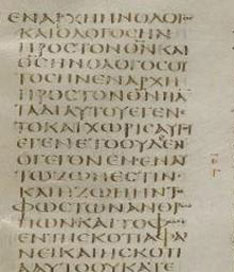 ΕΝΑΡΧΗΗΝΟΛΟΓΟϹ
ΚΑΙΟΛΟΓΟϹΗΝ
ΠΡΟϹΤΟΝΘ̅Ν̅ΚΑΙ
Θ̅Ϲ̅ΗΝΟΛΟΓΟϹΟΥ
ΤΟϹΗΝΕΝΑΡΧΗ
ΠΡΟϹΤΟΝΘ̅Ν̅ΠΑ
ΤΑΔΙΑΥΤΟΥΕΓΕΝΕ
ΤΟΚΑΙΧΩΡΙϹΑΥΤΟΥ
ΕΓΕΝΕΤΟΟΥΔΕΝ
ΟΓΕΓΟΝΕΝΕΝΑΥ
ΤΩΖΩΗΕϹΤΙΝ
ΚΑΙΗΖΩΗΗΝΤΟ
ΦΩϹΤΩΝΑΝΘΡΩ
ΠΩΝΚΑΙΤΟΦΩϹ
ΕΝΤΗϹΚΟΤΙΑΦΑΙ
ΝΕΙΚΑΙΗϹΚΟΤΙ
ΑΑΥΤΟΟΥΚΑΤΕ